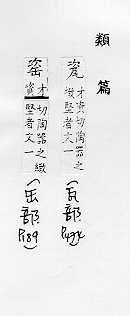 類篇
瓷 才資切陶器之
緻堅者文一
(瓦部
才切陶器之緻
資堅者文一
(缶部
P189)